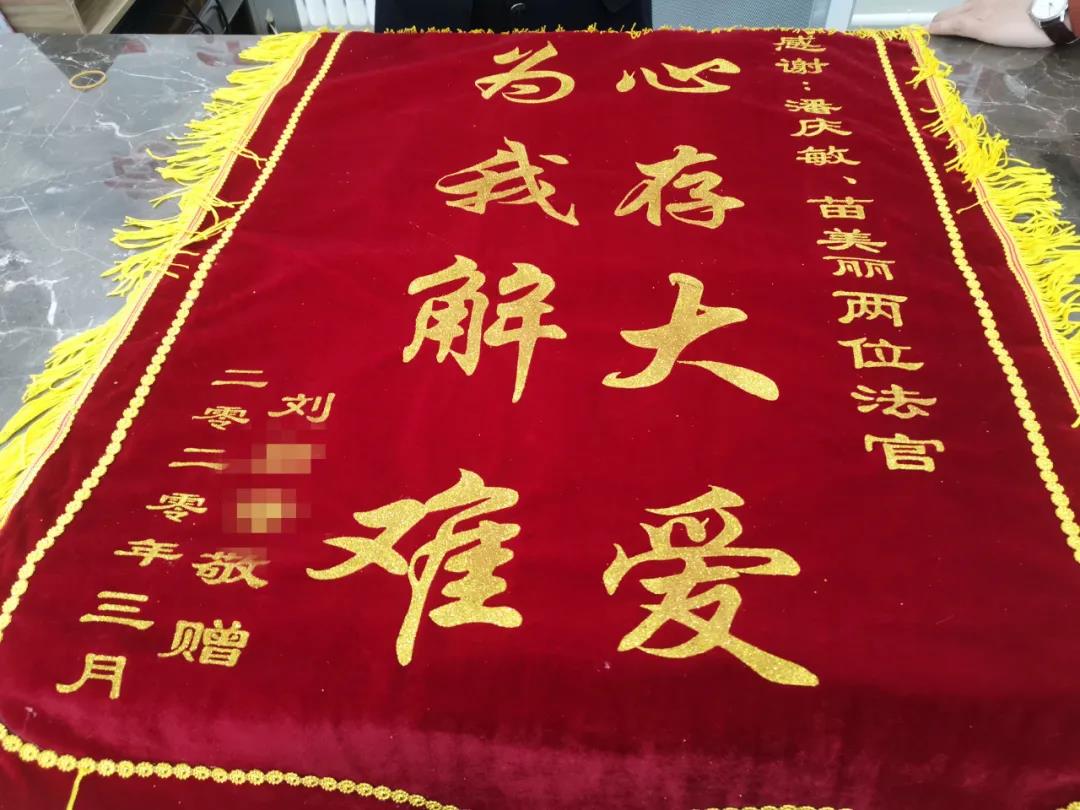 感谢：潘庆敏、苗美丽两位法官
心存大爱
为我解难
刘
敬赠
二零二零年三月